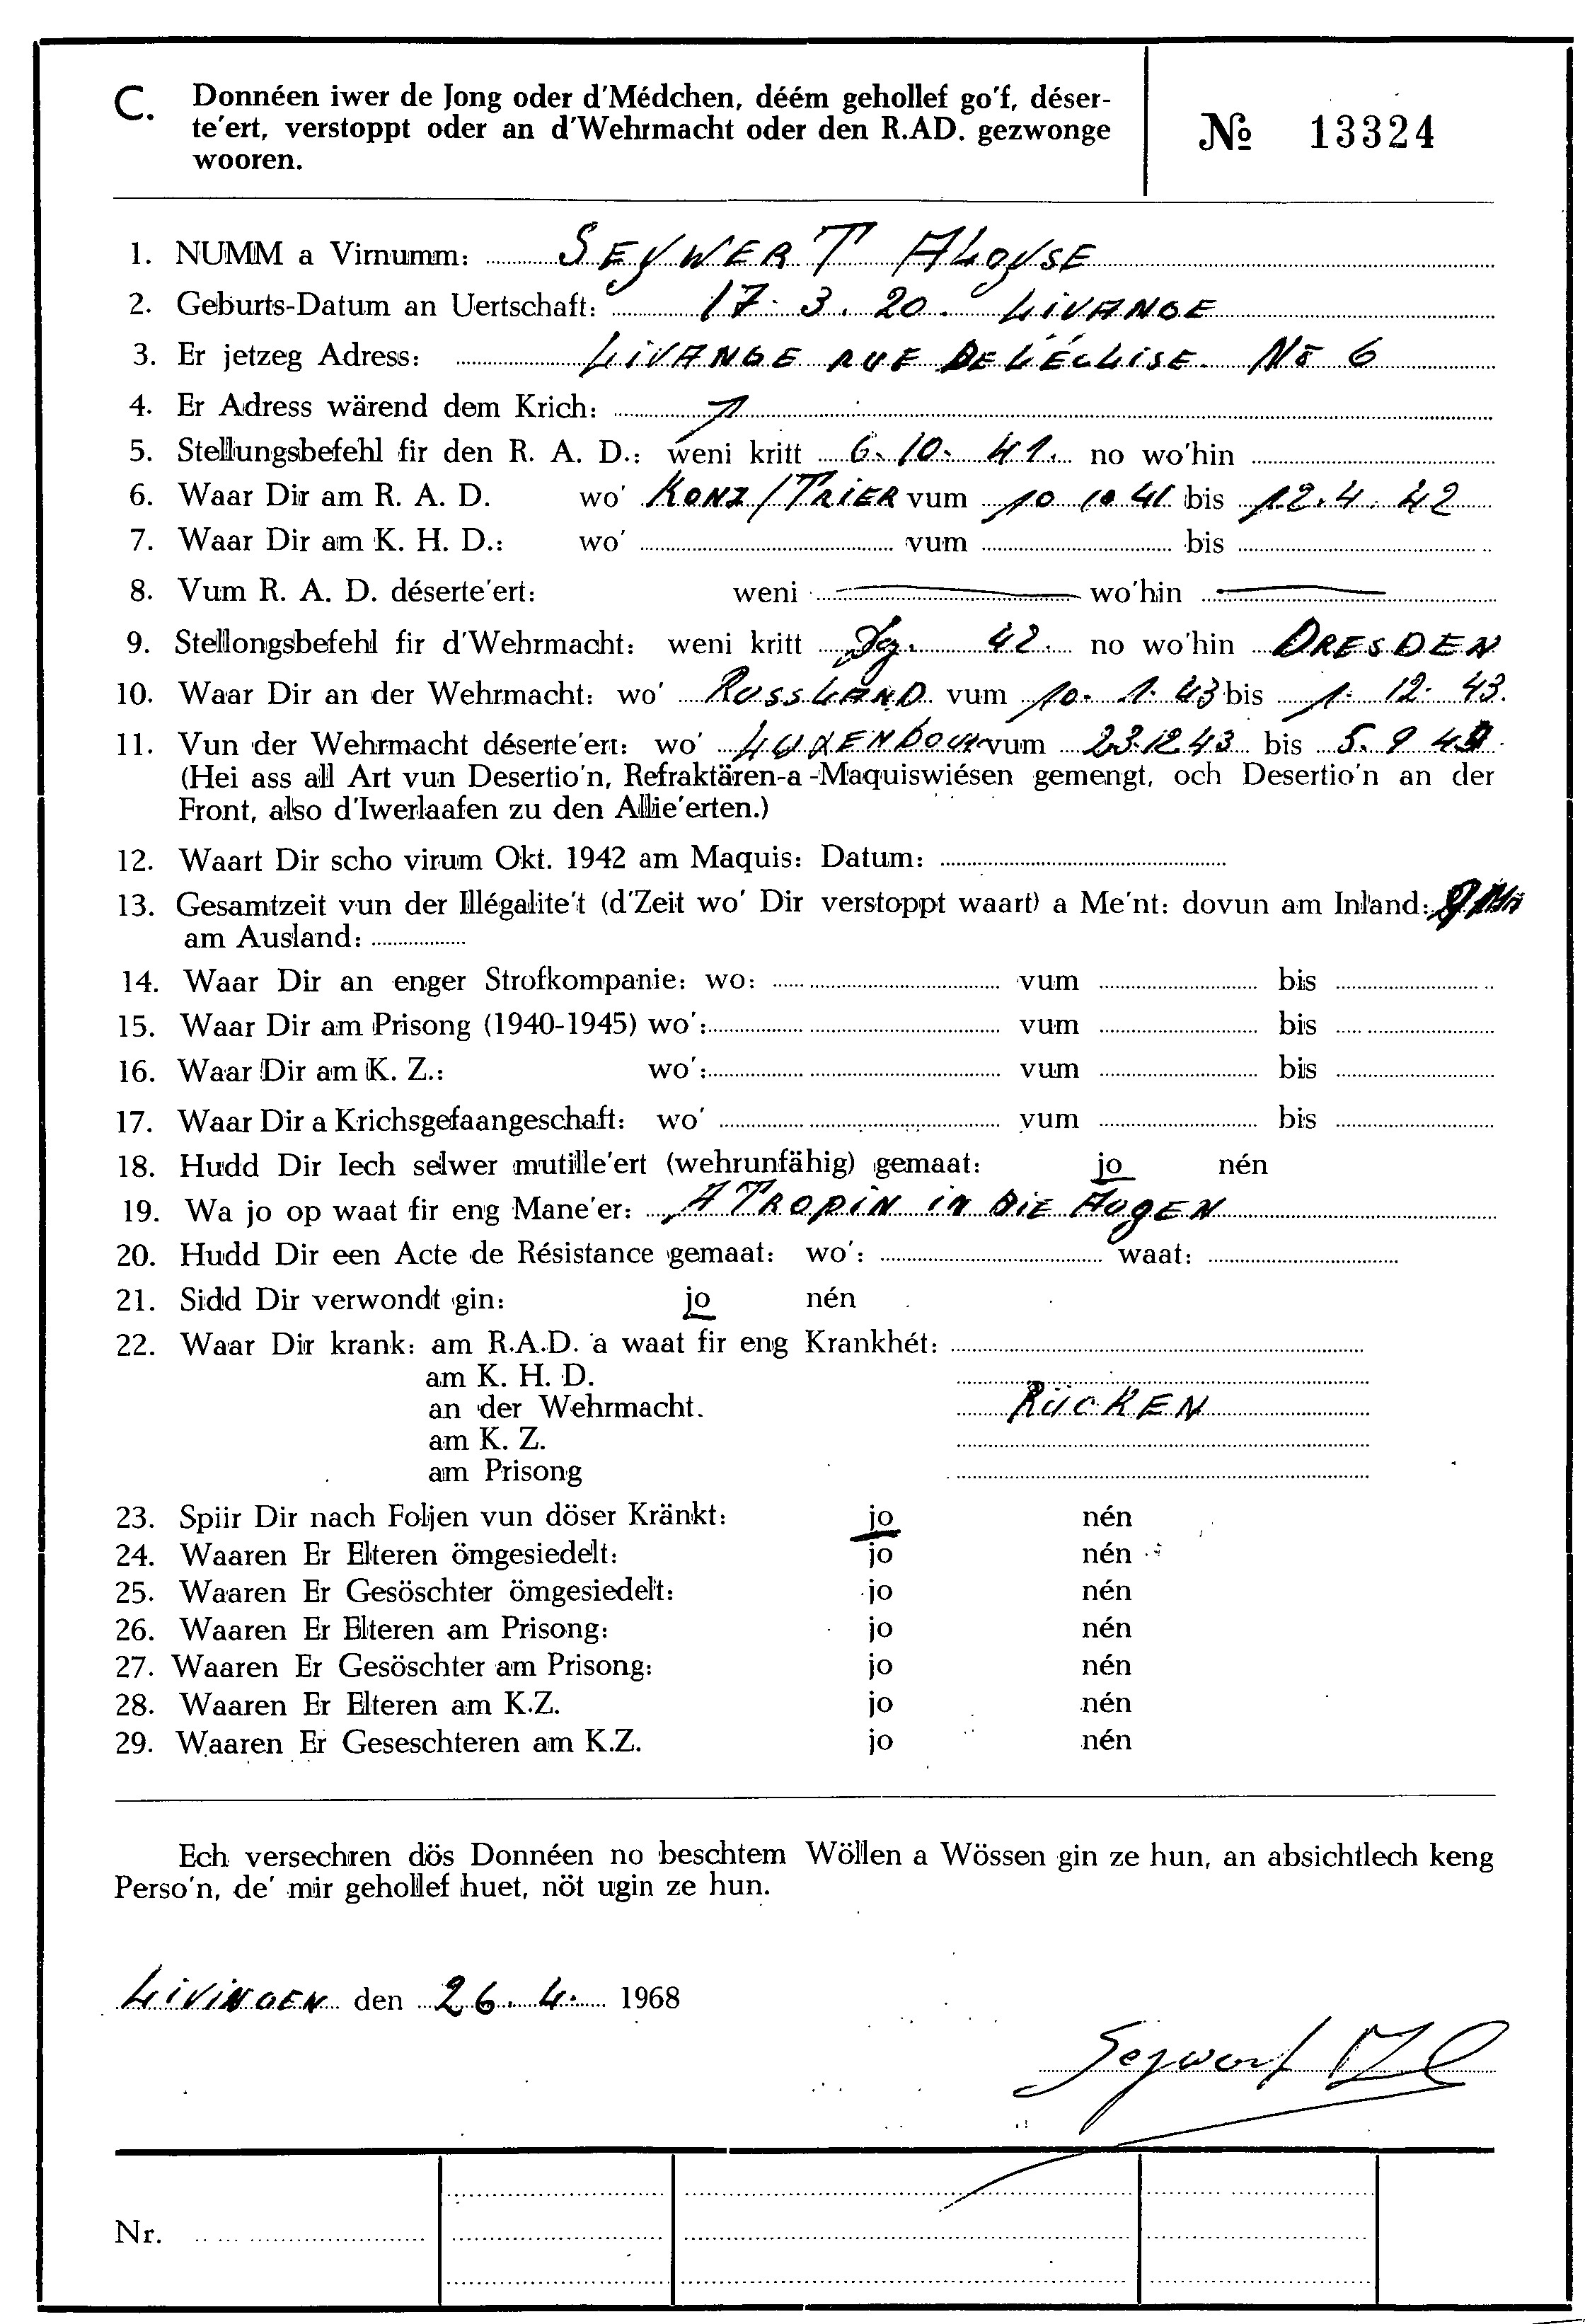 C. Donnéen iwer de Jong oder d'Médchen, déém gehollef go'f, déser-
te'ert, verstoppt oder an d'Wehrmacht oder den R.AD. gezwonge
wooren.
№ 13324
1. NUMM a Virnumm: SEYWERT ALOYSE
2. Geburts-Datum an Uertschaft: 17. 3. 20. LIVANGE
3. Er jetzeg Adress: LIVANGE RUE DE L'ÉGLISE. No 6
4. Er Adress wärend dem Krich:
5. Stellungsbefehl fir den R. A. D.: weni kritt 6. 10. 41. no wo'hin
6. Waar Dir am R. A. D. wo' KONZ/TRIER vum 10 10 41 bis 12. 4. 42
7. Waar Dir am K. H. D.: wo' vum bis
8. Vum R. A. D. déserte'ert: weni wo'hin
9. Stellongsbefehl fir d'Wehrmacht: weni kritt 42. no wo'hin DRESDEN
10. Waar Dir an der Wehrmacht: wo' RUSSLAND vum 10. 1. 43 bis 1. 12. 43.
11. Vun der Wehrmacht déserte'ert: wo' LUXENBOUR vum 23.12 43 bis 5. 9
(Hei ass all Art vun Desertio'n, Refraktären-a-Maquiswiésen gemengt, och Desertio'n an der
Front, also d'Iwerlaafen zu den Allie'erten.)
12. Waart Dir scho virum Okt. 1942 am Maquis: Datum:
13. Gesamtzeit vun der Illégalite't (d'Zeit wo' Dir verstoppt waart) a Me'nt: dovun am Inland:
am Ausland:
14. Waar Dir an enger Strofkompanie: wo: vum bis
15. Waar Dir am Prisong (1940-1945) wo': vum bis
16. Waar Dir am K. Z.: wo': vum bis
17. Waar Dir a Krichsgefaangeschaft: wo' vum bis
18. Hudd Dir Iech selwer mutille'ert (wehrunfähig) gemaat: jo nén
19. Wa jo op waat fir eng Mane'er: ATROPIN IN DIE AUGEN
20. Hudd Dir een Acte de Résistance gemaat: wo': waat:
21. Sidd Dir verwondt gin: jo nén
22. Waar Dir krank: am R.A.D. a waat fir eng Krankhét:
am K. H. D.
an der Wehrmacht. RÜCKEN
am K. Z.
am Prisong
23. Spiir Dir nach Foljen vun döser Kränkt: jo nén
24. Waaren Er Elteren ömgesiedelt: jo nén
25. Waaren Er Gesöschter ömgesiedelt: jo nén
26. Waaren Er Elteren am Prisong: jo nén
27. Waaren Er Gesöschter am Prisong: jo nén
28. Waaren Er Elteren am K.Z. jo nén
29. Waaren Er Geseschteren am K.Z. jo nén
Ech versechren dös Donnéen no beschtem Wöllen a Wössen gin ze hun, an absichtlech keng
Perso'n, de' mir gehollef huet, nöt ugin ze hun.
LIVINGEN den 26. 4. 1968
Seywert
Nr.